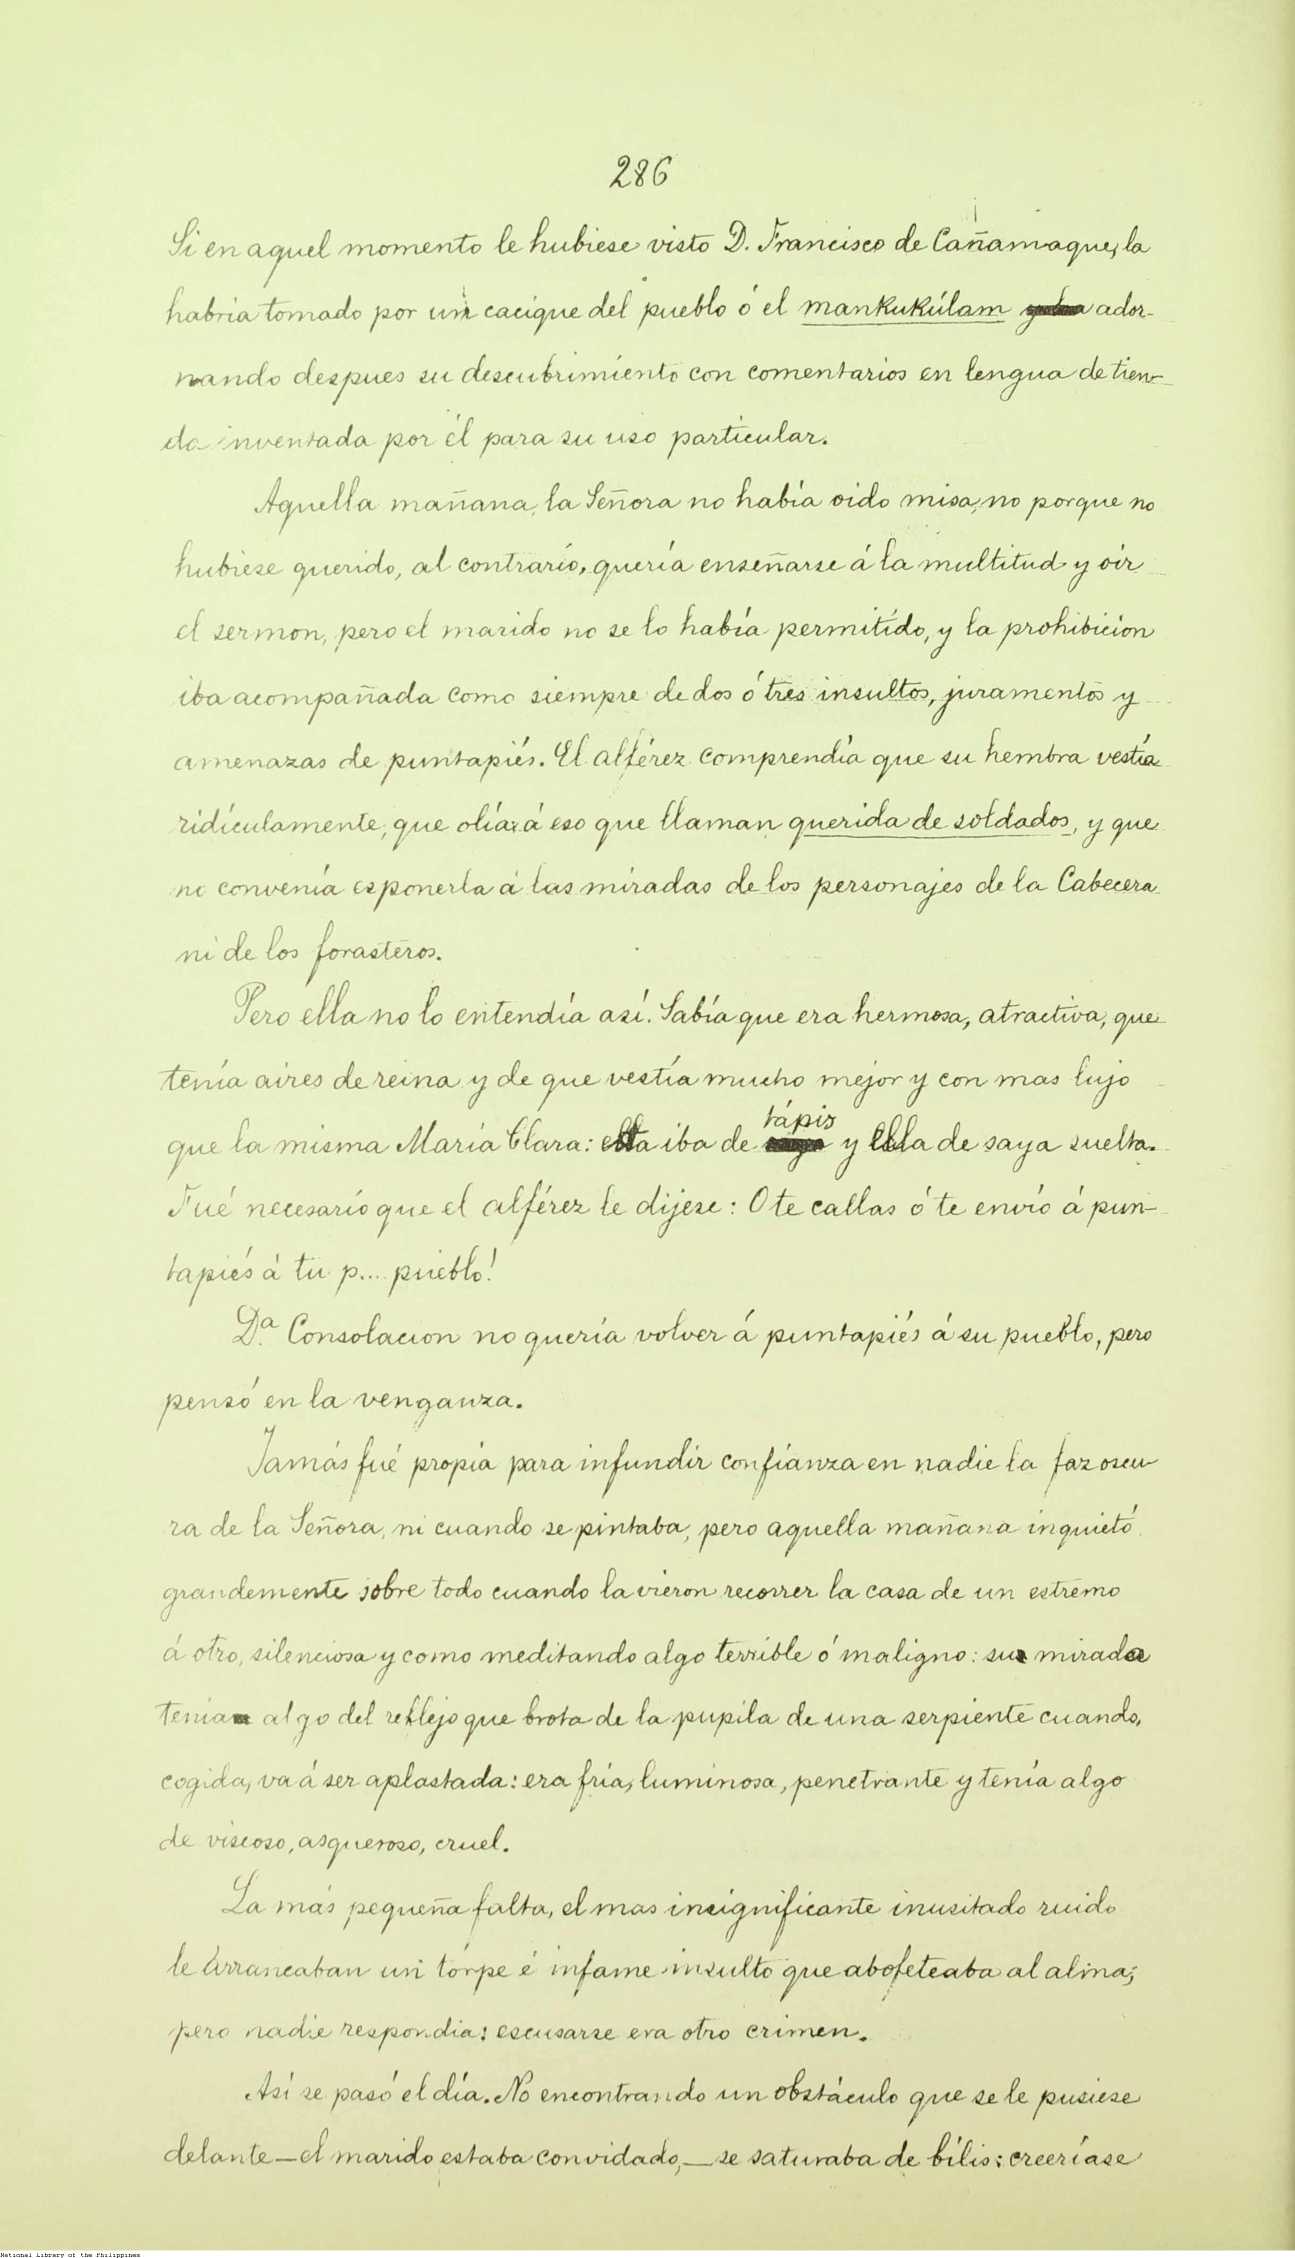 286
Si en aquel momento le hubiese visto D. Francisco de Cañamaque, la
habria tomado por un cacique del pueblo ó el mankukúlam ador-
nando despues su descubrimiento con comentarios en lengua de tien-
da inventada por él para su uso particular.
Aquella mañana, la Señora no había oido misa, no porque no
hubiese querido, al contrario, quería enseñarse á la multitud y oir
el sermon, pero el marido no se lo había permitido, y la prohibicion
iba acompañada como siempre de dos ó tres insultos, juramentos y
amenazas de puntapiés. El alférez comprendía que su hembra vestía
ridículamente, que olía á eso que llaman querida de soldados, y que
no convenía esponerla á las miradas de los personajes de la Cabecera
ni de los forasteros.
Pero ella no lo entendía así. Sabía que era hermosa, atractiva, que
tenía aires de reina y de que vestía mucho mejor y con mas lujo
tápis
que la misma María Clara: esta iba de y ella de saya suelta.
Fué necesario que el alférez le dijese: O te callas ó te envío á pun-
tapiés á tu p.... pueblo!
Dª. Consolacion no quería volver á puntapiés á su pueblo, pero
pensó en la venganza.
Jamás fué propia para infundir confianza en nadie la faz oscu-
ra de la Señora, ni cuando se pintaba, pero aquella mañana inquietó
grandemente sobre todo cuando la vieron recorrer la casa de un estremo
á otro, silenciosa y como meditando algo terrible ó maligno: su mirada
tenia algo del reflejo que brota de la pupila de una serpiente cuando,
cogida, va á ser aplastada: era fría, luminosa, penetrante y tenía algo
de viscoso, asqueroso, cruel.
La más pequeña falta, el mas insignificante inusitado ruido
le arrancaban un torpe é infame insulto que abofeteaba al alma;
pero nadie respondia: escusarse era otro crimen.
Así se pasó el día. No encontrando un obstáculo que se le pusiese
delante — el marido estaba convidado, — se saturaba de bílis: creeríase
National Library of the Philippines